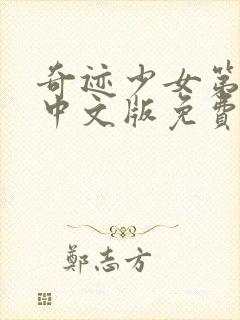 奇迹少女第
中文版免費
鄭志方